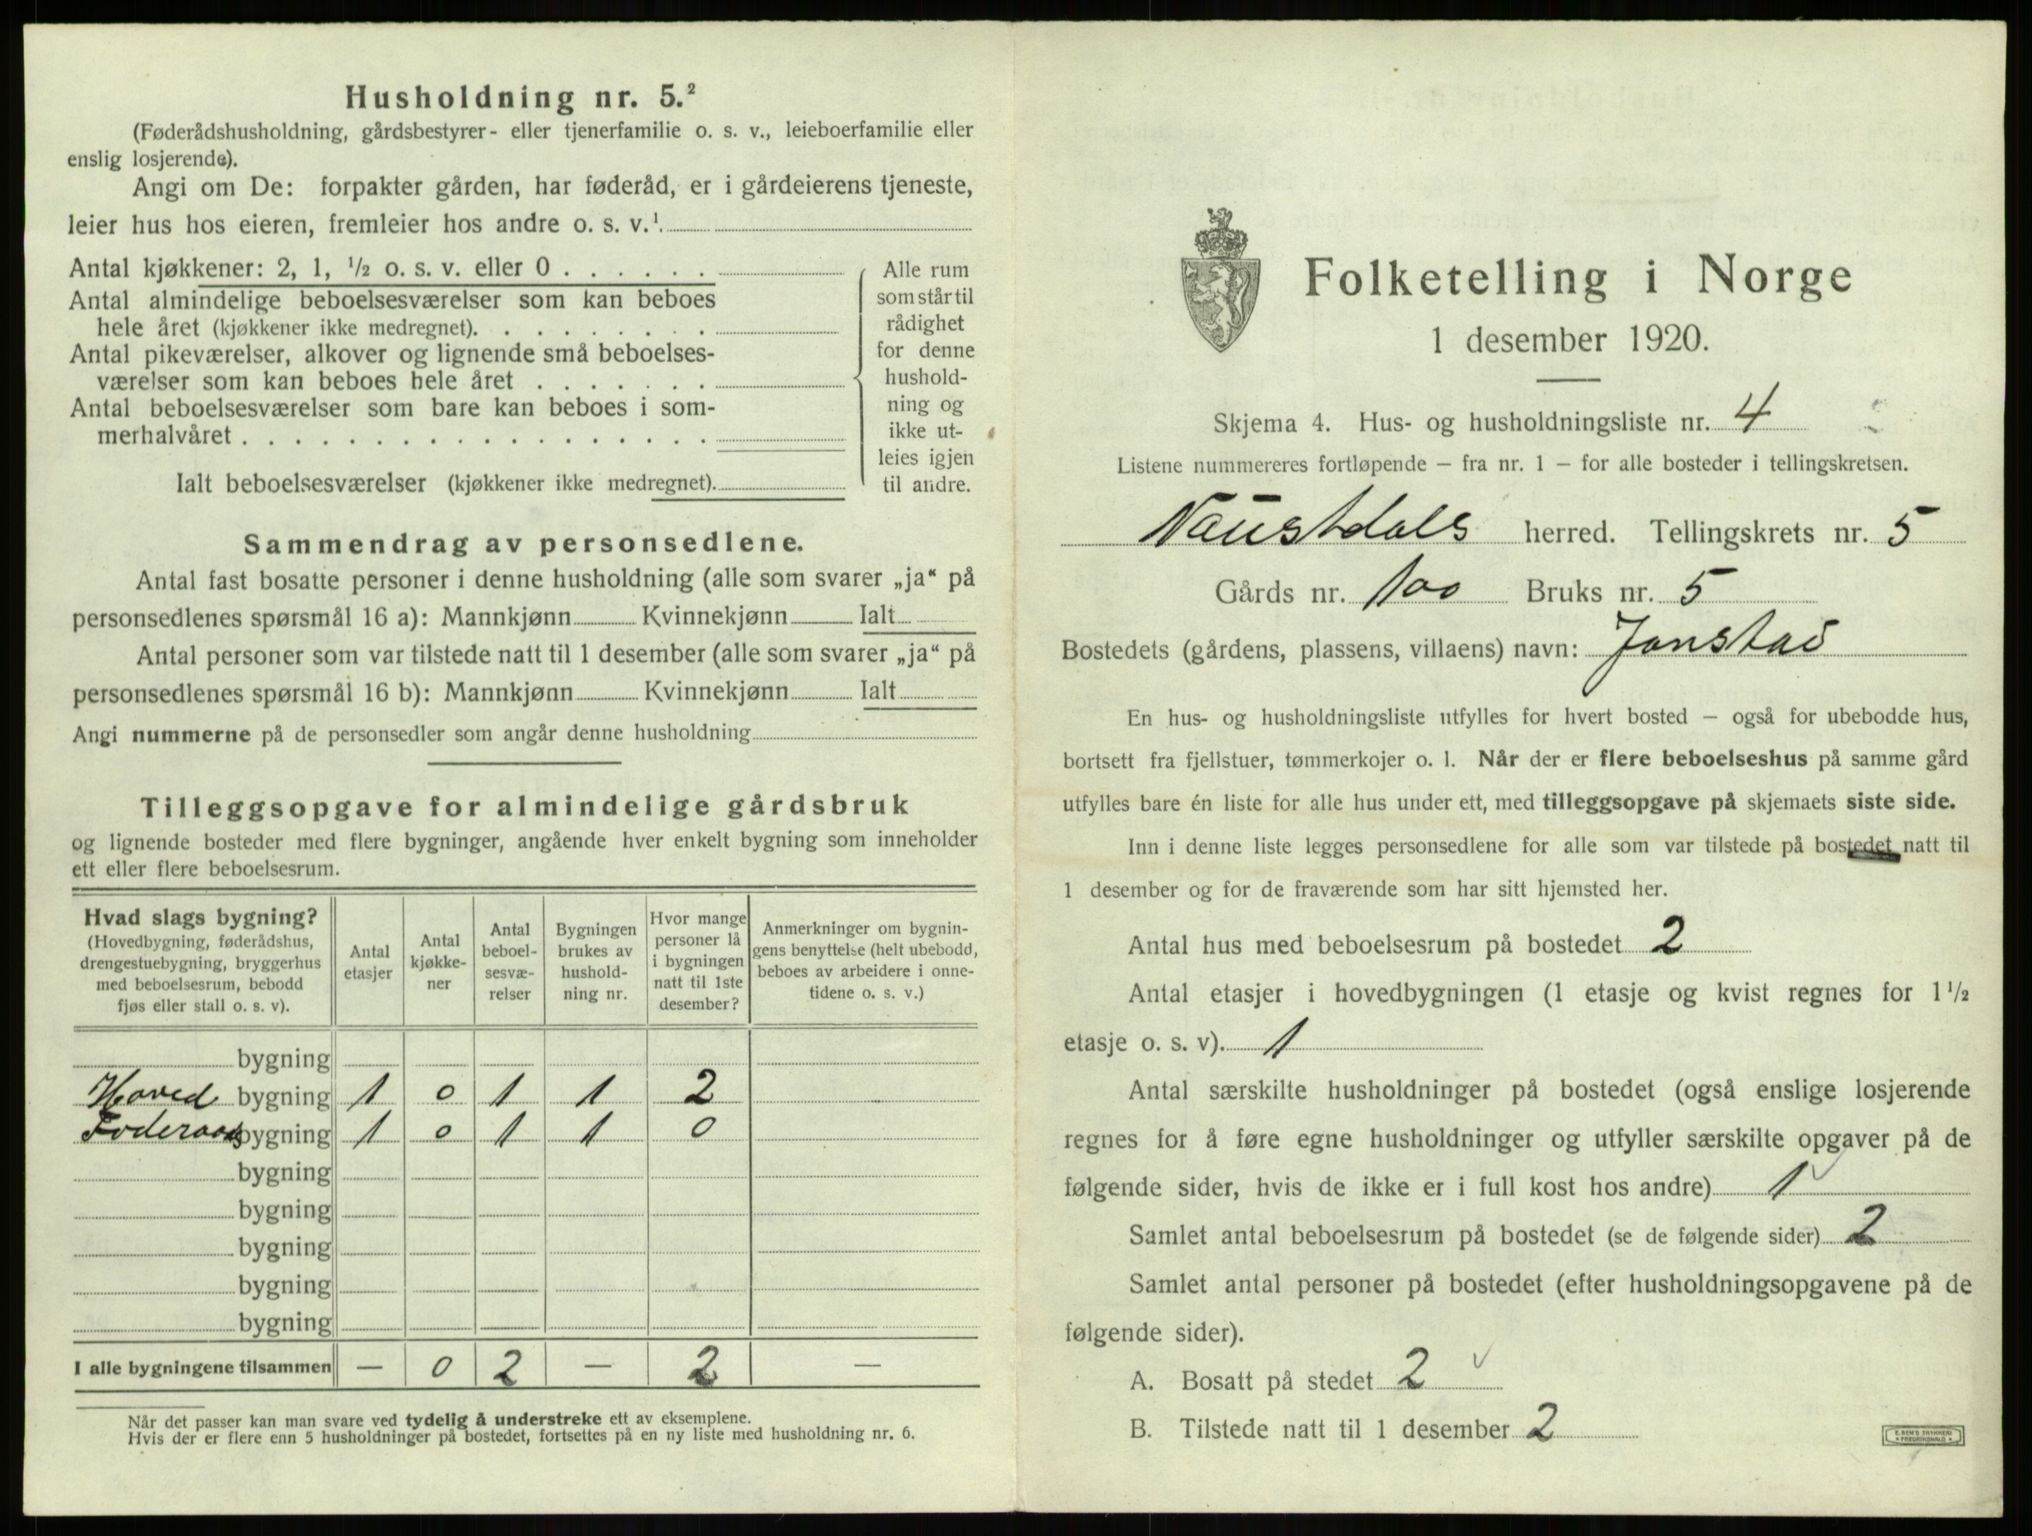 Husholdning nr. 5.²
(Føderådshusholdning, gårdsbestyrer- eller tjenerfamilie o. s. v., leieboerfamilie eller
enslig losjerende).
Angi om De: forpakter gården, har føderåd, er i gårdeierens tjeneste,
leier hus hos eieren, fremleier hos andre o. s. v.¹
Antal kjøkkener: 2, 1, ½ o. s. v. eller 0 . . . . . .
Antal almindelige beboelsesværelser som kan beboes
hele året (kjøkkener ikke medregnet). . . . . . . . .
Antal pikeværelser, alkover og lignende små beboelses-
værelser som kan beboes hele året . . . . . . .
Antal beboelsesværelser som bare kan beboes i som-
merhalvåret . . . . . . . . . . . . . . . . . .
Ialt beboelsesværelser (kjøkkener ikke medregnet).
Alle rum
som står til
rådighet
for denne
hushold-
ning og
ikke ut-
leies igjen
til andre.
Sammendrag av personsedlene.
Antal fast bosatte personer i denne husholdning (alle som svarer „ja“ på
personsedlenes spørsmål 16 a): Mannkjønn Kvinnekjønn Ialt
Antal personer som var tilstede natt til 1 desember (alle som svarer „ja“ på
personsedlenes spørsmål 16 b): Mannkjønn Kvinnekjønn Ialt
Angi nummerne på de personsedler som angår denne husholdning
Tilleggsopgave for almindelige gårdsbruk
og lignende bosteder med flere bygninger, angående hver enkelt bygning som inneholder
ett eller flere beboelsesrum.
Hvad slags bygning?
(Hovedbygning, føderådshus,
drengestuebygning, bryggerhus
med beboelsesrum, bebodd
fjøs eller stall o. s. v).
Antal
etasjer
Antal
kjøkke-
ner
Antal
beboel-
sesvæ-
relser
Bygningen
brukes av
hushold-
ning nr.
Hvor mange
personer lå
i bygningen
natt til 1ste
desember?
Anmerkninger om bygnin-
gens benyttelse (helt ubebodd,
beboes av arbeidere i onne-
tidene o. s. v.)
bygning
Hoved bygning 1 0 1 1 2
Føderaads bygning 1 0 1 1 0
bygning
bygning
bygning
bygning
bygning
I alle bygningene tilsammen — 0 2 — 2 —
Når det passer kan man svare ved tydelig å understreke ett av eksemplene.
Hvis der er flere enn 5 husholdninger på bostedet, fortsettes på en ny liste med husholdning nr. 6.
Folketelling i Norge
1 desember 1920.
Skjema 4. Hus- og husholdningsliste nr. 4
Listene nummereres fortløpende — fra nr. 1 — for alle bosteder i tellingskretsen.
Naustdals herred. Tellingskrets nr. 5
Gårds nr. 100 Bruks nr. 5
Bostedets (gårdens, plassens, villaens) navn: Jonstad
En hus- og husholdningsliste utfylles for hvert bosted — også for ubebodde hus,
bortsett fra fjellstuer, tømmerkojer o. l. Når der er flere beboelseshus på samme gård
utfylles bare én liste for alle hus under ett, med tilleggsopgave på skjemaets siste side.
Inn i denne liste legges personsedlene for alle som var tilstede på bostedet natt til
1 desember og for de fraværende som har sitt hjemsted her.
Antal hus med beboelsesrum på bostedet 2
Antal etasjer i hovedbygningen (1 etasje og kvist regnes for 1½
etasje o. s. v). 1
Antal særskilte husholdninger på bostedet (også enslige losjerende
regnes for å føre egne husholdninger og utfyller særskilte opgaver på de
følgende sider, hvis de ikke er i full kost hos andre) 1 ✓
Samlet antal beboelsesrum på bostedet (se de følgende sider) 2
Samlet antal personer på bostedet (efter husholdningsopgavene på de
følgende sider).
A. Bosatt på stedet 2 ✓
B. Tilstede natt til 1 desember 2